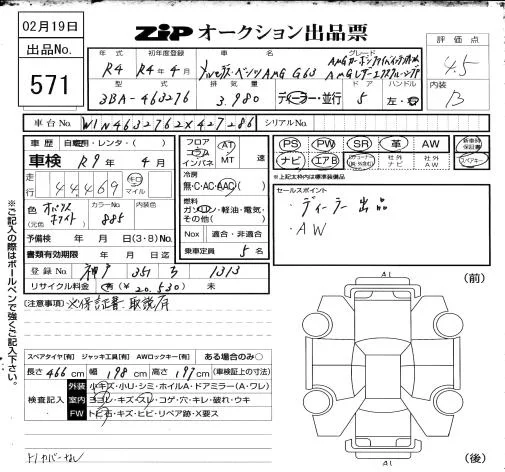 02月19日
ZiP オークション出品票
出品No.
571
年式 初年度登録 車名 グレード
R4 R4年4月 メルセデス・ベンツ AMG G63
型式 排気量 ドア ハンドル
3BA-463276 3.980 ディーラー・並行 5 左・右
評価点
4.5
内装
B
車台No. W1N4632762X427286 シリアルNo.
車歴 自家用・レンタ・( )
車検 R9年4月
走行 44469 キロ マイル
色 オパリス ホワイト (元色 ) カラーNo. 885 内装色
予備検 年 月 日(3・8)No.
書類有効期限 年 月 日迄
登録No. 神戸 351 み 1313
リサイクル料金 有(¥20.530) 未
フロア コラム インパネ AT MT 速
冷房 無・C・AC・AAC( )
燃料 ガソリン・軽油・電気・その他( )
Nox 適合・非適合
乗車定員 5名
PS PW SR 革 AW 新車時保証書
ナビ エアB 社外ナビ 社外AW スペアキー
※上記太枠内は標準装備品
セールスポイント
・ディーラー出品
・AW
(注意事項) ※保証書、取説有
※ご記入の際はボールペンで強くご記入下さい。
スペアタイヤ[有] ジャッキ工具[有] AWロックキー[有] ある場合のみ○
長さ 466 cm 幅 198 cm 高さ 197 cm (車検証上の寸法)
検査記入
外装 小キズ・小U・シミ・ホイルA・ドアミラー(A・ワレ)
室内 ヨゴレ・キズ・スレ・コゲ・穴・キレ・破れ・ウキ
FW トビ石・キズ・ヒビ・リペア跡・X要ス
トノカバーなし
(前)
A1
A1
(後)